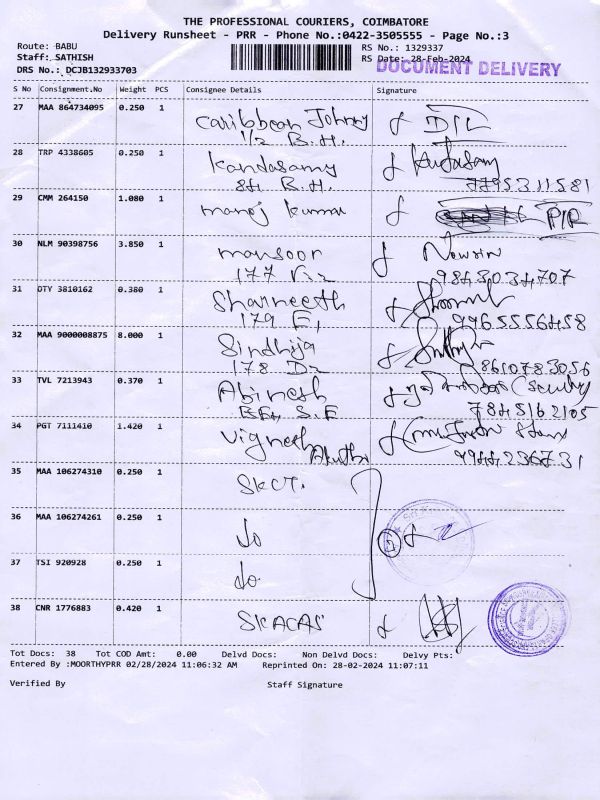 THE PROFESSIONAL COURIERS, COIMBATORE
Delivery Runsheet - PRR - Phone No.:0422-3505555 - Page No.:3
Route: BABU
Staff: SATHISH
DRS No.: DCJB132933703
RS No.: 1329337
RS Date: 28-Feb-2024
DOCUMENT DELIVERY
S No Consignment.No Weight PCS Consignee Details Signature
27 MAA 864734095 0.250 1 Caribbean Johnny D/L
1/2 B.H.
28 TRP 4338605 0.250 1 Kandasamy
84 B.H. 7795311581
29 CMM 264150 1.080 1 manoj kumar P/R
30 NLM 90398756 3.850 1 mansoor
177 9843034707
31 OTY 3810162 0.380 1 Sharneesh
179 E1 9965556458
32 MAA 9000008875 8.000 1 Sindhija
178 D2 8610783056
33 TVL 7213943 0.370 1 Abinesh
S.F 7845162105
34 PGT 7111410 1.420 1 Vignesh
9944236731
35 MAA 106274310 0.250 1 SKCT.
36 MAA 106274261 0.250 1 do
37 TSI 920928 0.250 1 do
38 CNR 1776883 0.420 1 SKACAS
Tot Docs: 38 Tot COD Amt: 0.00 Delvd Docs: Non Delvd Docs: Delvy Pts:
Entered By :MOORTHYPRR 02/28/2024 11:06:32 AM Reprinted On: 28-02-2024 11:07:11
Verified By Staff Signature